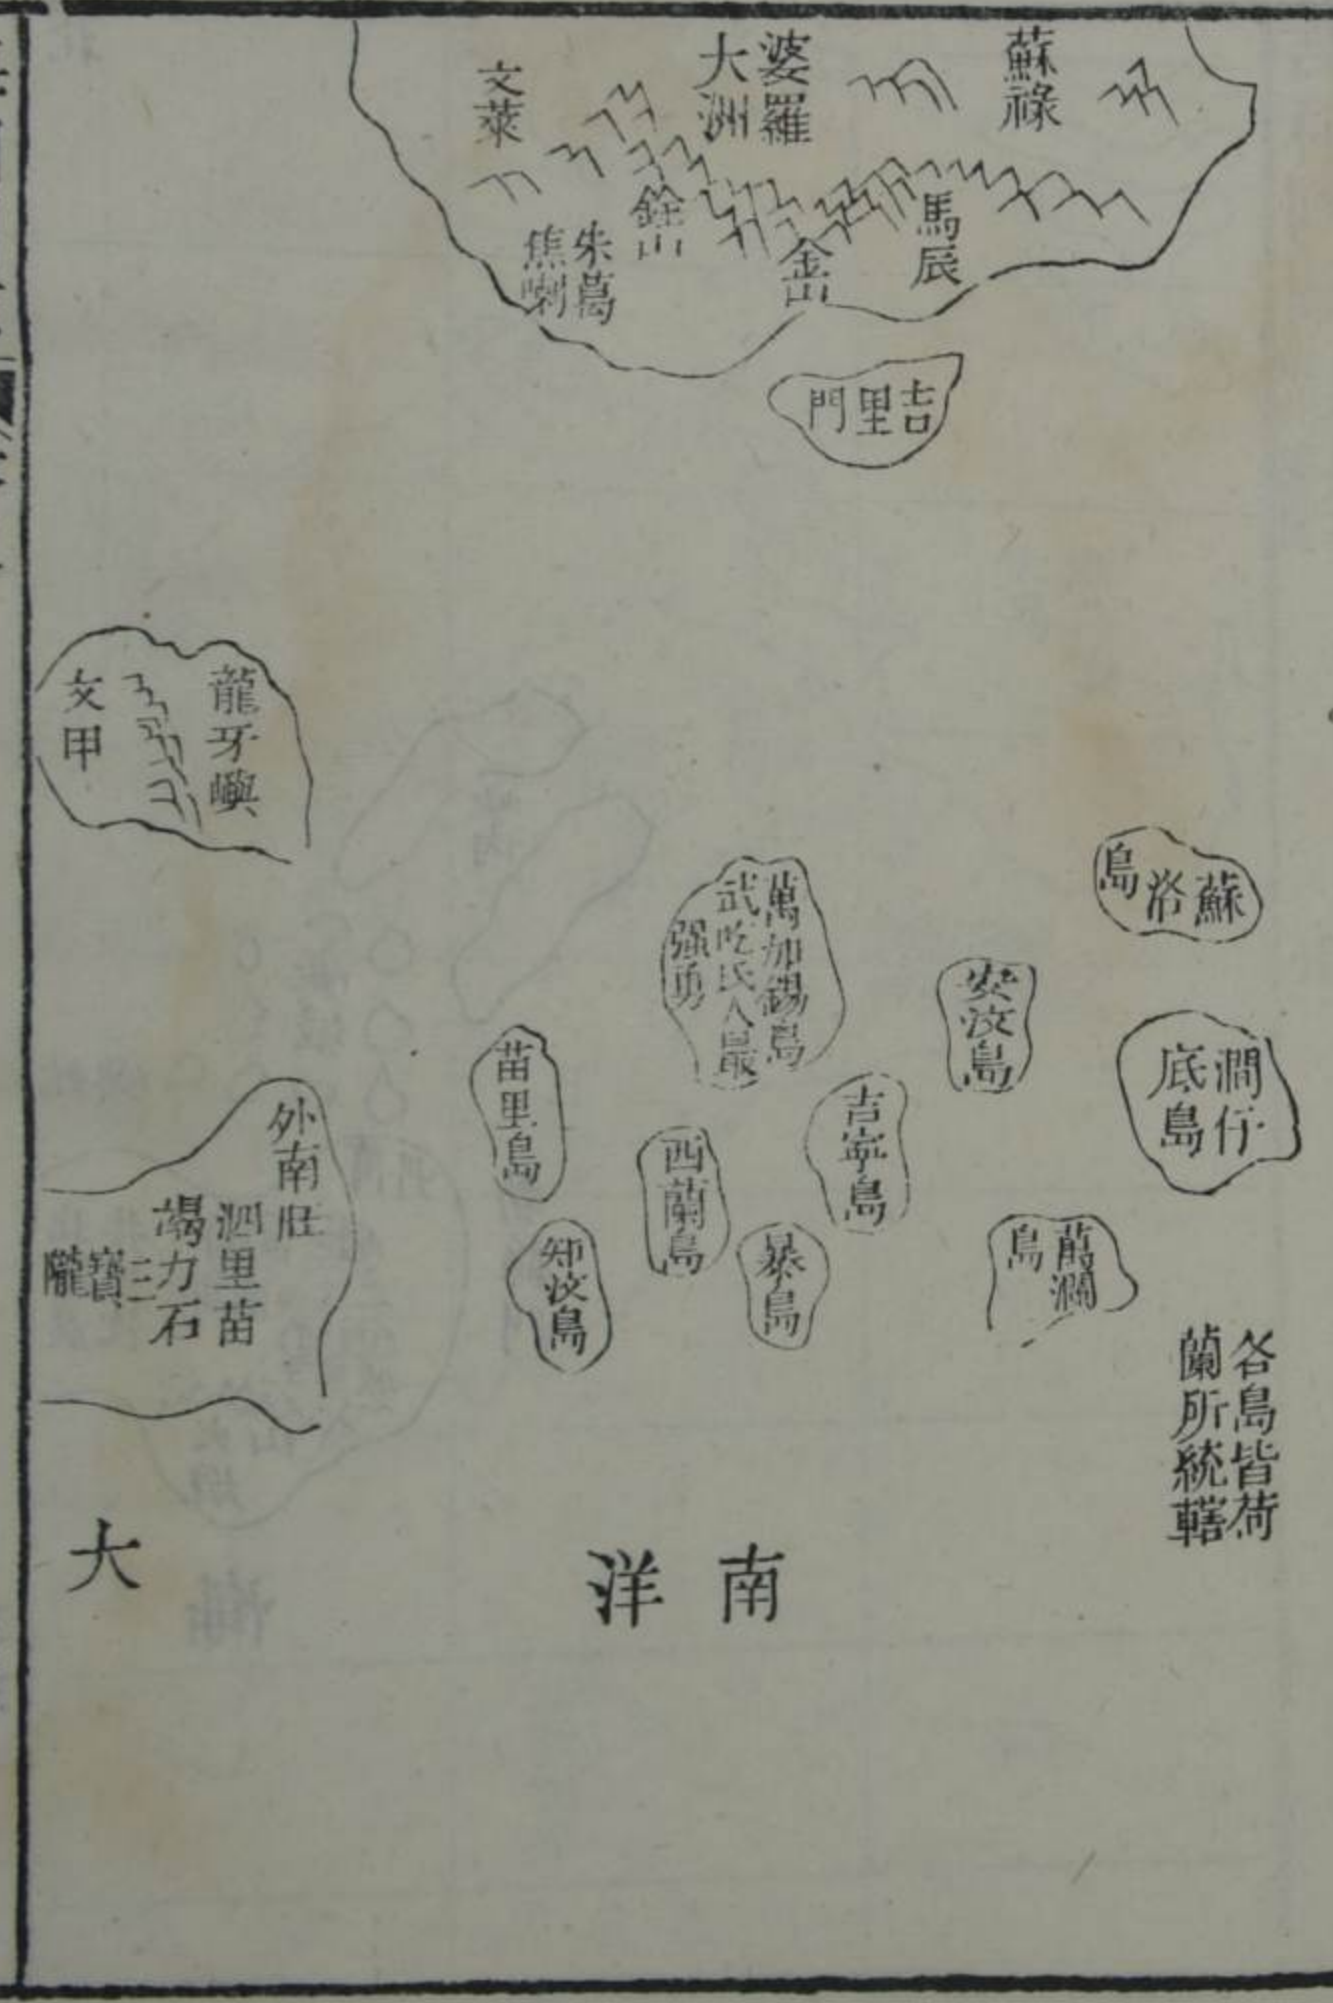 蘇祿
婆羅
大洲
文萊
馬辰
金山
朱葛
焦喇
吉里門
龍牙嶼
文甲
蘇洛
島
萬加錫島
武吃氏人最
强勇
安汶島
澗仔
底島
苗里島
吉寧島
西蘭島
暴島
知汶島
萬瀾
島
外南旺
泗里苗
竭力石
三寶隴
各島皆荷
蘭所統轄
南洋
大